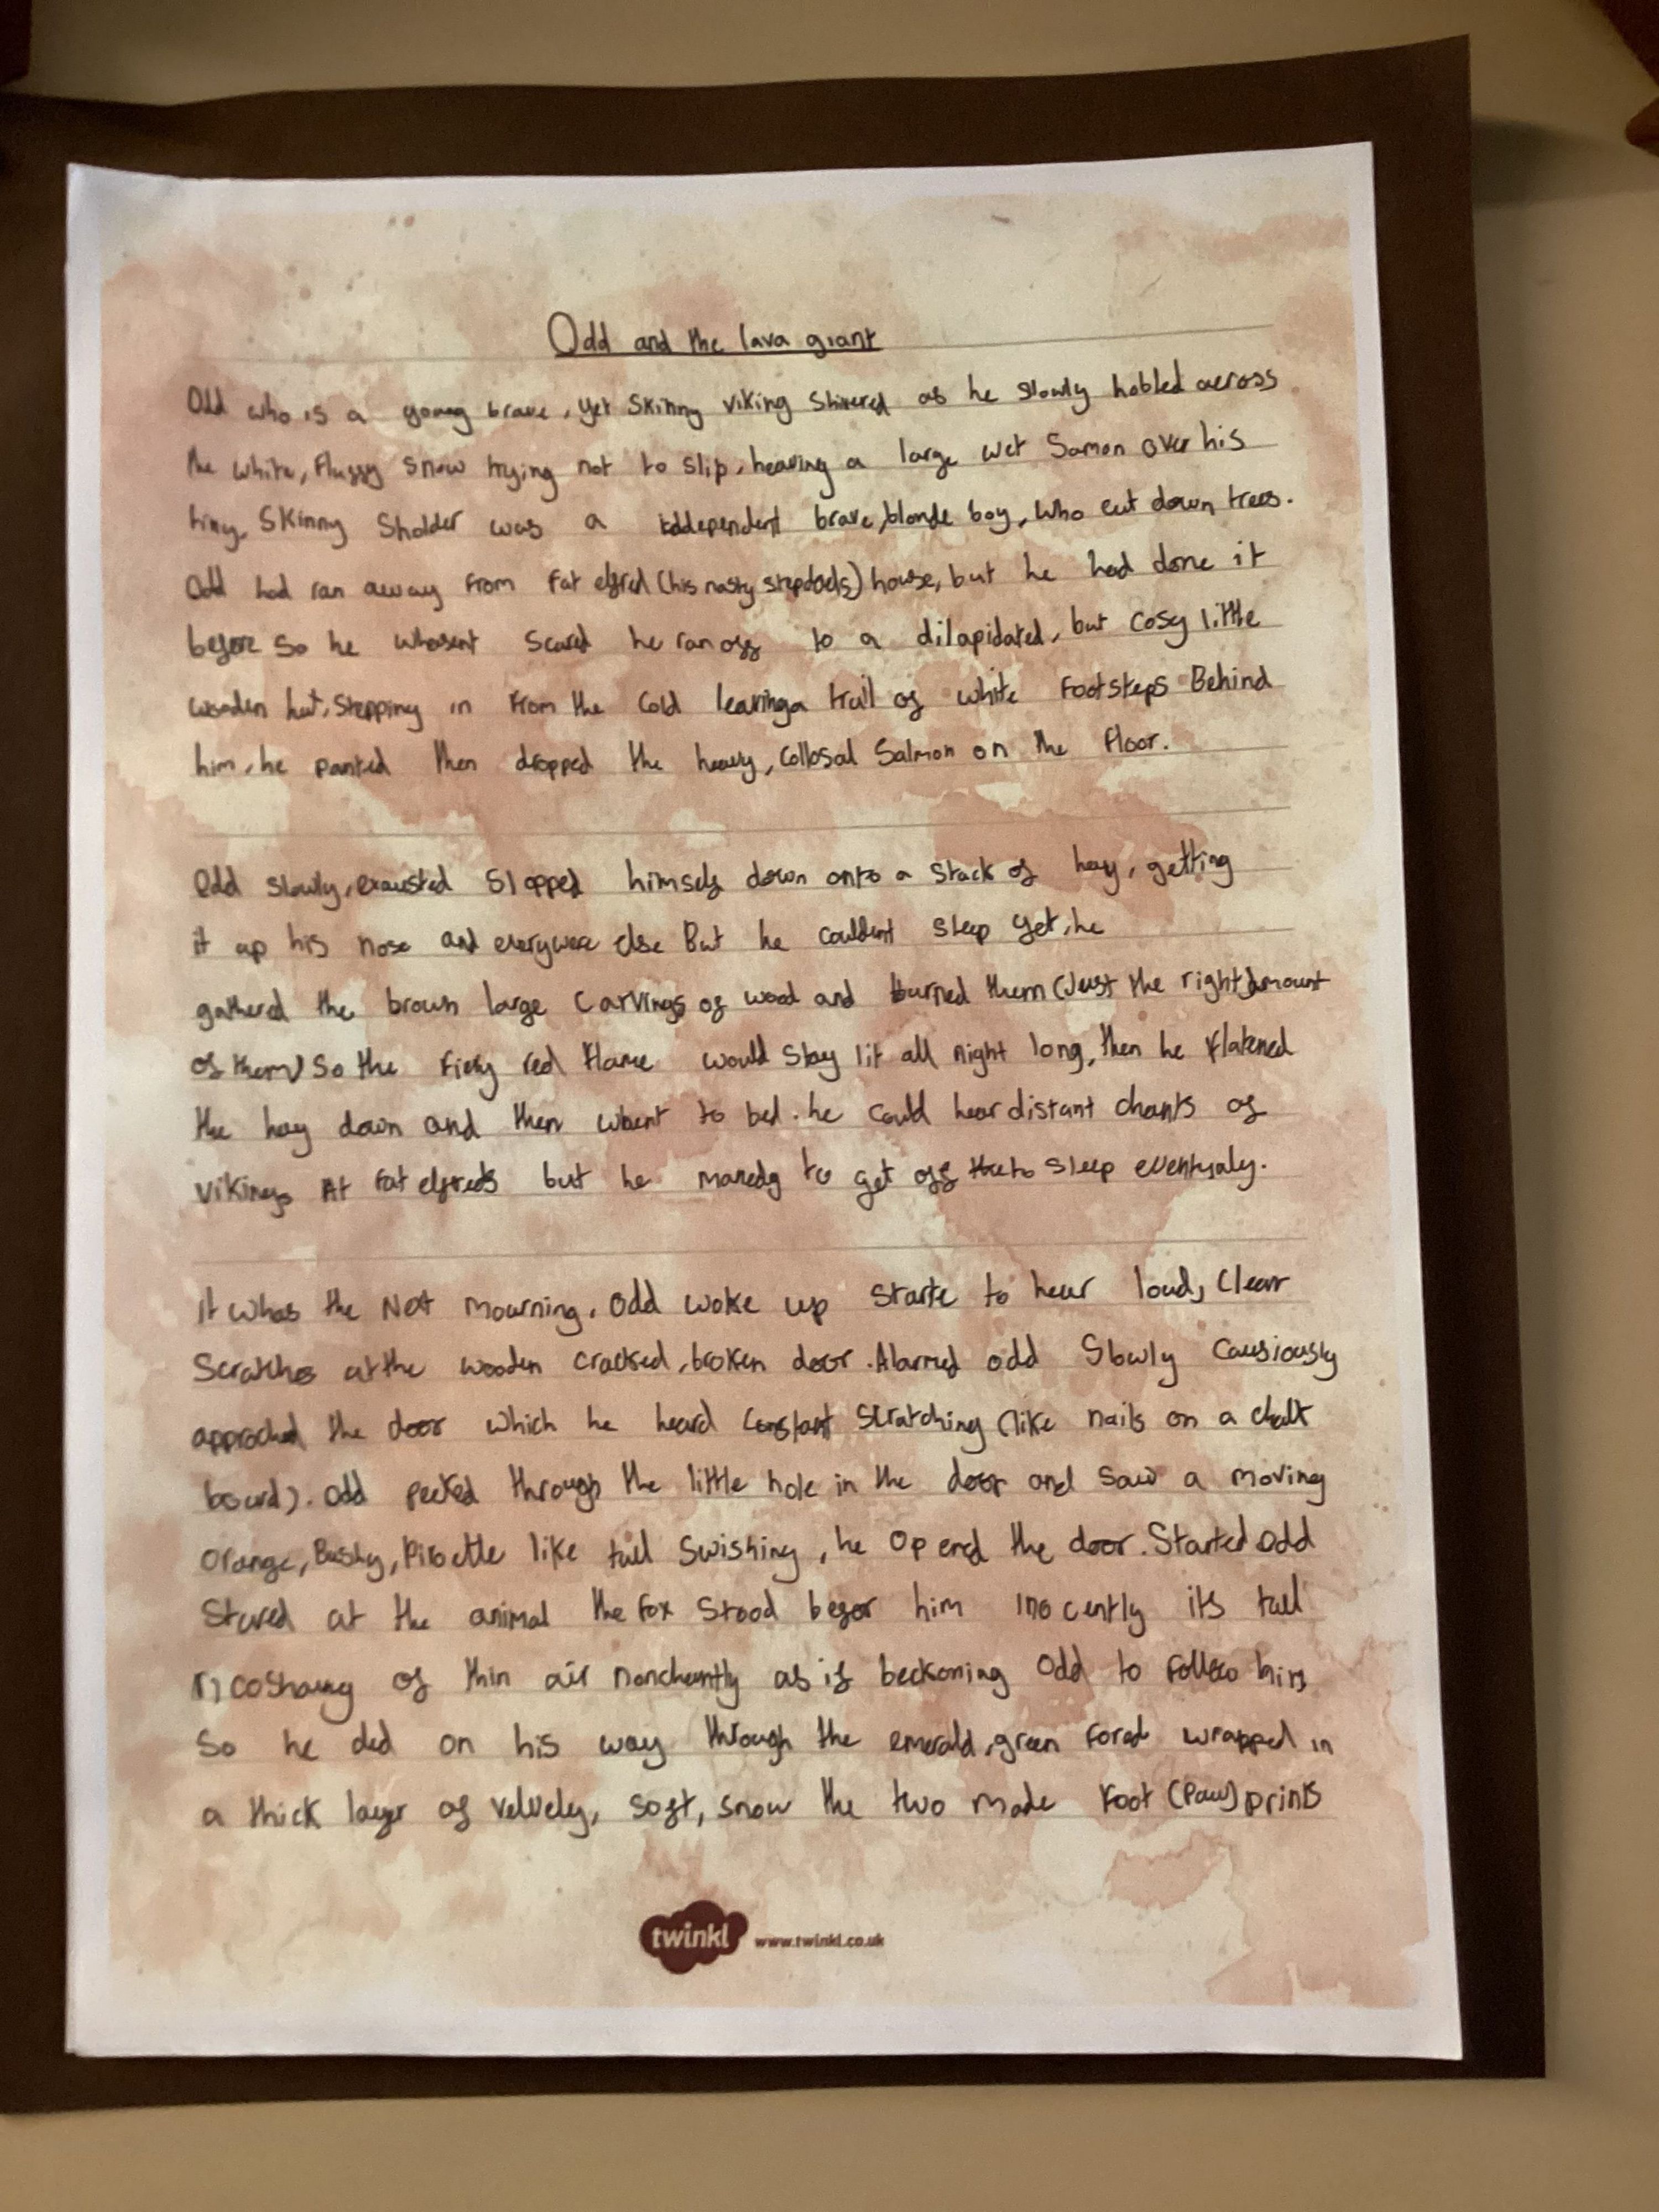 Odd and the lava giant
Odd who is a young brave, yet skinny viking shivered as he slowly hobled across
the white, fluffy snow trying not to slip, heaving a large wet Samon over his
tiny, skinny sholder was a iddependent brave, blonde boy, who cut down trees.
Odd had ran away from fat elfred (his nasty stepdads) house, but he had done it
before so he whasent scared he ran off to a dilapidated, but cosy little
wooden hut, stepping in from the cold leaving a trail of white footsteps Behind
him, he panted then dropped the heavy, collosal Salmon on the floor.
Odd slowly, exausted slopped himself down onto a stack of hay, getting
it up his nose and everywere else But he couldent sleep yet, he
gathered the brown large carvings of wood and burned them (Just the right amount
of them) so the fiery red flame would stay lit all night long, then he flatened
the hay down and then whent to bed. he could hear distant chants of
vikings At fat elfreds but he manedg to get off to sleep eventualy.
it whas the Next mourning, Odd woke up starte to hear loud, clear
scratches at the wooden cracked, broken door. Alarmed odd slowly causiously
approched the door which he heard constant scratching (like nails on a chalk
board). Odd peeked through the little hole in the door and saw a moving
orange, Bushy, Piroette like tail swishing, he opened the door. Started Odd
stared at the animal the fox stood befor him inocently its tail
ricoshaying of thin air nonchantly as if beckoning Odd to follow him
So he did on his way through the emerald, green forest wrapped in
a thick layer of velvety, soft, snow the two made foot (paw) prints
twinkl www.twinkl.co.uk